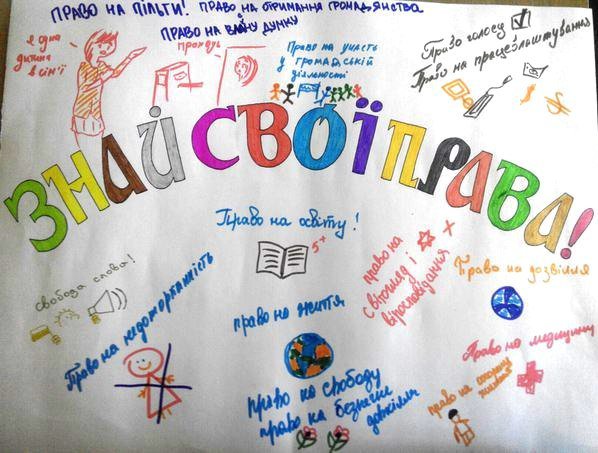 ПРАВО НА ПІЛЬГИ!
ПРАВО НА ОТРИМАННЯ ГРОМАДЯНСТВА
ПРАВО НА ВЛАСНУ ДУМКУ
Я одна
дитина
в сім'ї
Право на участь
у громадській
діяльності
Право голосу
Право на працевлаштування
ЗНАЙ СВОЇ ПРАВА!
Право на освіту!
5+
свобода слова!
Право на недоторканість
право на життя
право на
світогляд і
віросповідання
Право на дозвілля
Право на медицину
право на охорону
право на свободу
право на безпечне
довкілля